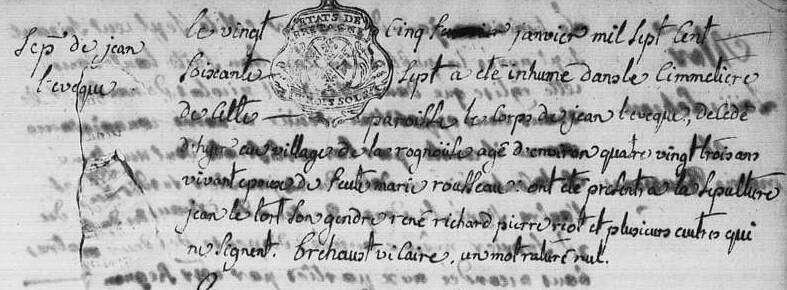 Sep. de jean
l'evequ.
ETATS DE
BRETAGNE
DEUX SOLS
le vingt cinq janvier mil sept cent
soixante sept a eté inhumé dans le cimmetiere
de cette paroisse le corps de jean l'eveque, decedé
d'hyer au village de la rognoüile agé d'environ quatre vingt trois ans
vivant epoux de feüe marie rousseau: ont eté presents a la sepulture
jean le tort son gendre rené richard pierre riot et plusieurs autres qui
ne signent. brehault vicaire. un mot raturé nul.